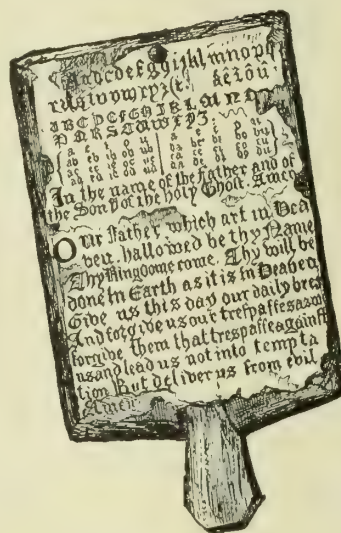 Aabcdefghijklmnopq
rſstuvwxyz&: áéíôû
ABCDEFGHIKLMNO
PQRSTUWXYZ.
a e i o u a e i o u
ab eb ib ob ub ba be bi bo bu
ac ec ic oc uc ca ce ci co cu
ad ed id od ud da de di do du
In the name of the Father and of
the Son & of the holy Ghost. Amen
Our Father, which art in Hea
ven, hallowed be thy Name
Thy Kingdome come. Thy will be
done in Earth as it is in Heaven
Give us this day our daily bread
And forgive us our treſpaſſes as we
forgive them that treſpaſſe againſt
us and lead us not into tempta
tion But deliver us from evil
Amen